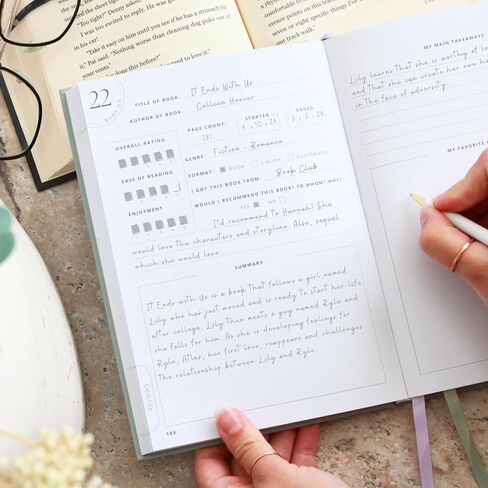 doing this before?" Denny asked.
was too excited to read. He had a comforting
"Take it easy on him until you see if he has a stomach for
in his car?"
it," Pat said. "Nothing worse than cleaning dog puke out of
your vents."
seven or eight specific things
mt track walk."
22
BOOK NO.
TITLE OF BOOK: It Ends With Us
AUTHOR OF BOOK: Colleen Hoover
OVERALL RATING
EASE OF READING
ENJOYMENT
PAGE COUNT: 387
STARTED
4 x 10 x 24
ENDED
5 x 6 x 24
GENRE: Fiction - Romance
FORMAT: BOOK E-BOOK AUDIOBOOK
I GOT THIS BOOK FROM: Book Club
WOULD I RECOMMEND THIS BOOK TO WHOM? WHY?
YES NO
I'd recommend To Hannah! She
would love the characters and storyline. Also, sequel
which she would love
SUMMARY
It Ends with Us is a book that follows a girl named
Lily who has just moved and is ready to start her life
after college. Lily then meets a guy named Ryle and
she falls for him. As she is developing feelings for
Ryle, Atlas, her first love, reappears and challenges
the relationship between Lily and Ryle.
REVIEWS
199
MY MAIN TAKEAWAY
Lily learns that she is worthy of lo
and that she can create her own ha
in the face of adversity.
MY FAVORITE